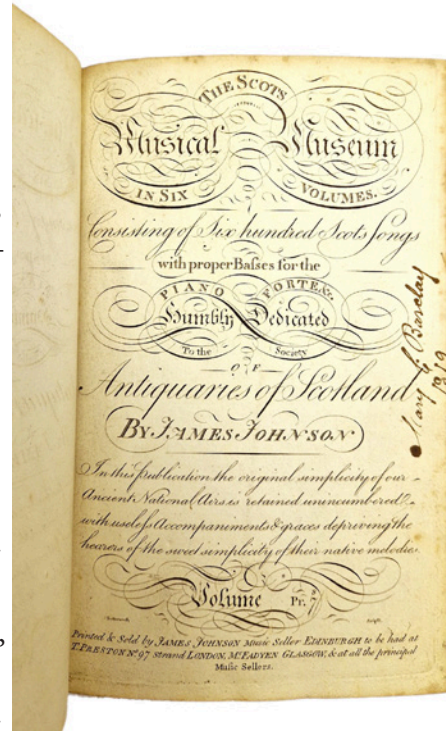 THE SCOTS
Musical Museum
IN SIX VOLUMES.
Consisting of Six hundred Scots Songs
with proper Baſses for the
PIANO FORTE &c.
Humbly Dedicated
To the Society
OF
Antiquaries of Scotland
BY JAMES JOHNSON
In this publication the original simplicity of our
Ancient National Airs is retained unincumbered
with useleſs Accompaniments & graces depriving the
hearers of the sweet simplicity of their native melodies.
Volume Pr.
Printed & Sold by JAMES JOHNSON Music Seller EDINBURGH to be had at
T. PRESTON No. 97 Strand LONDON, Mc. FADYEN GLASGOW, & at all the principal
Muſic Sellers.
Mary Barclay